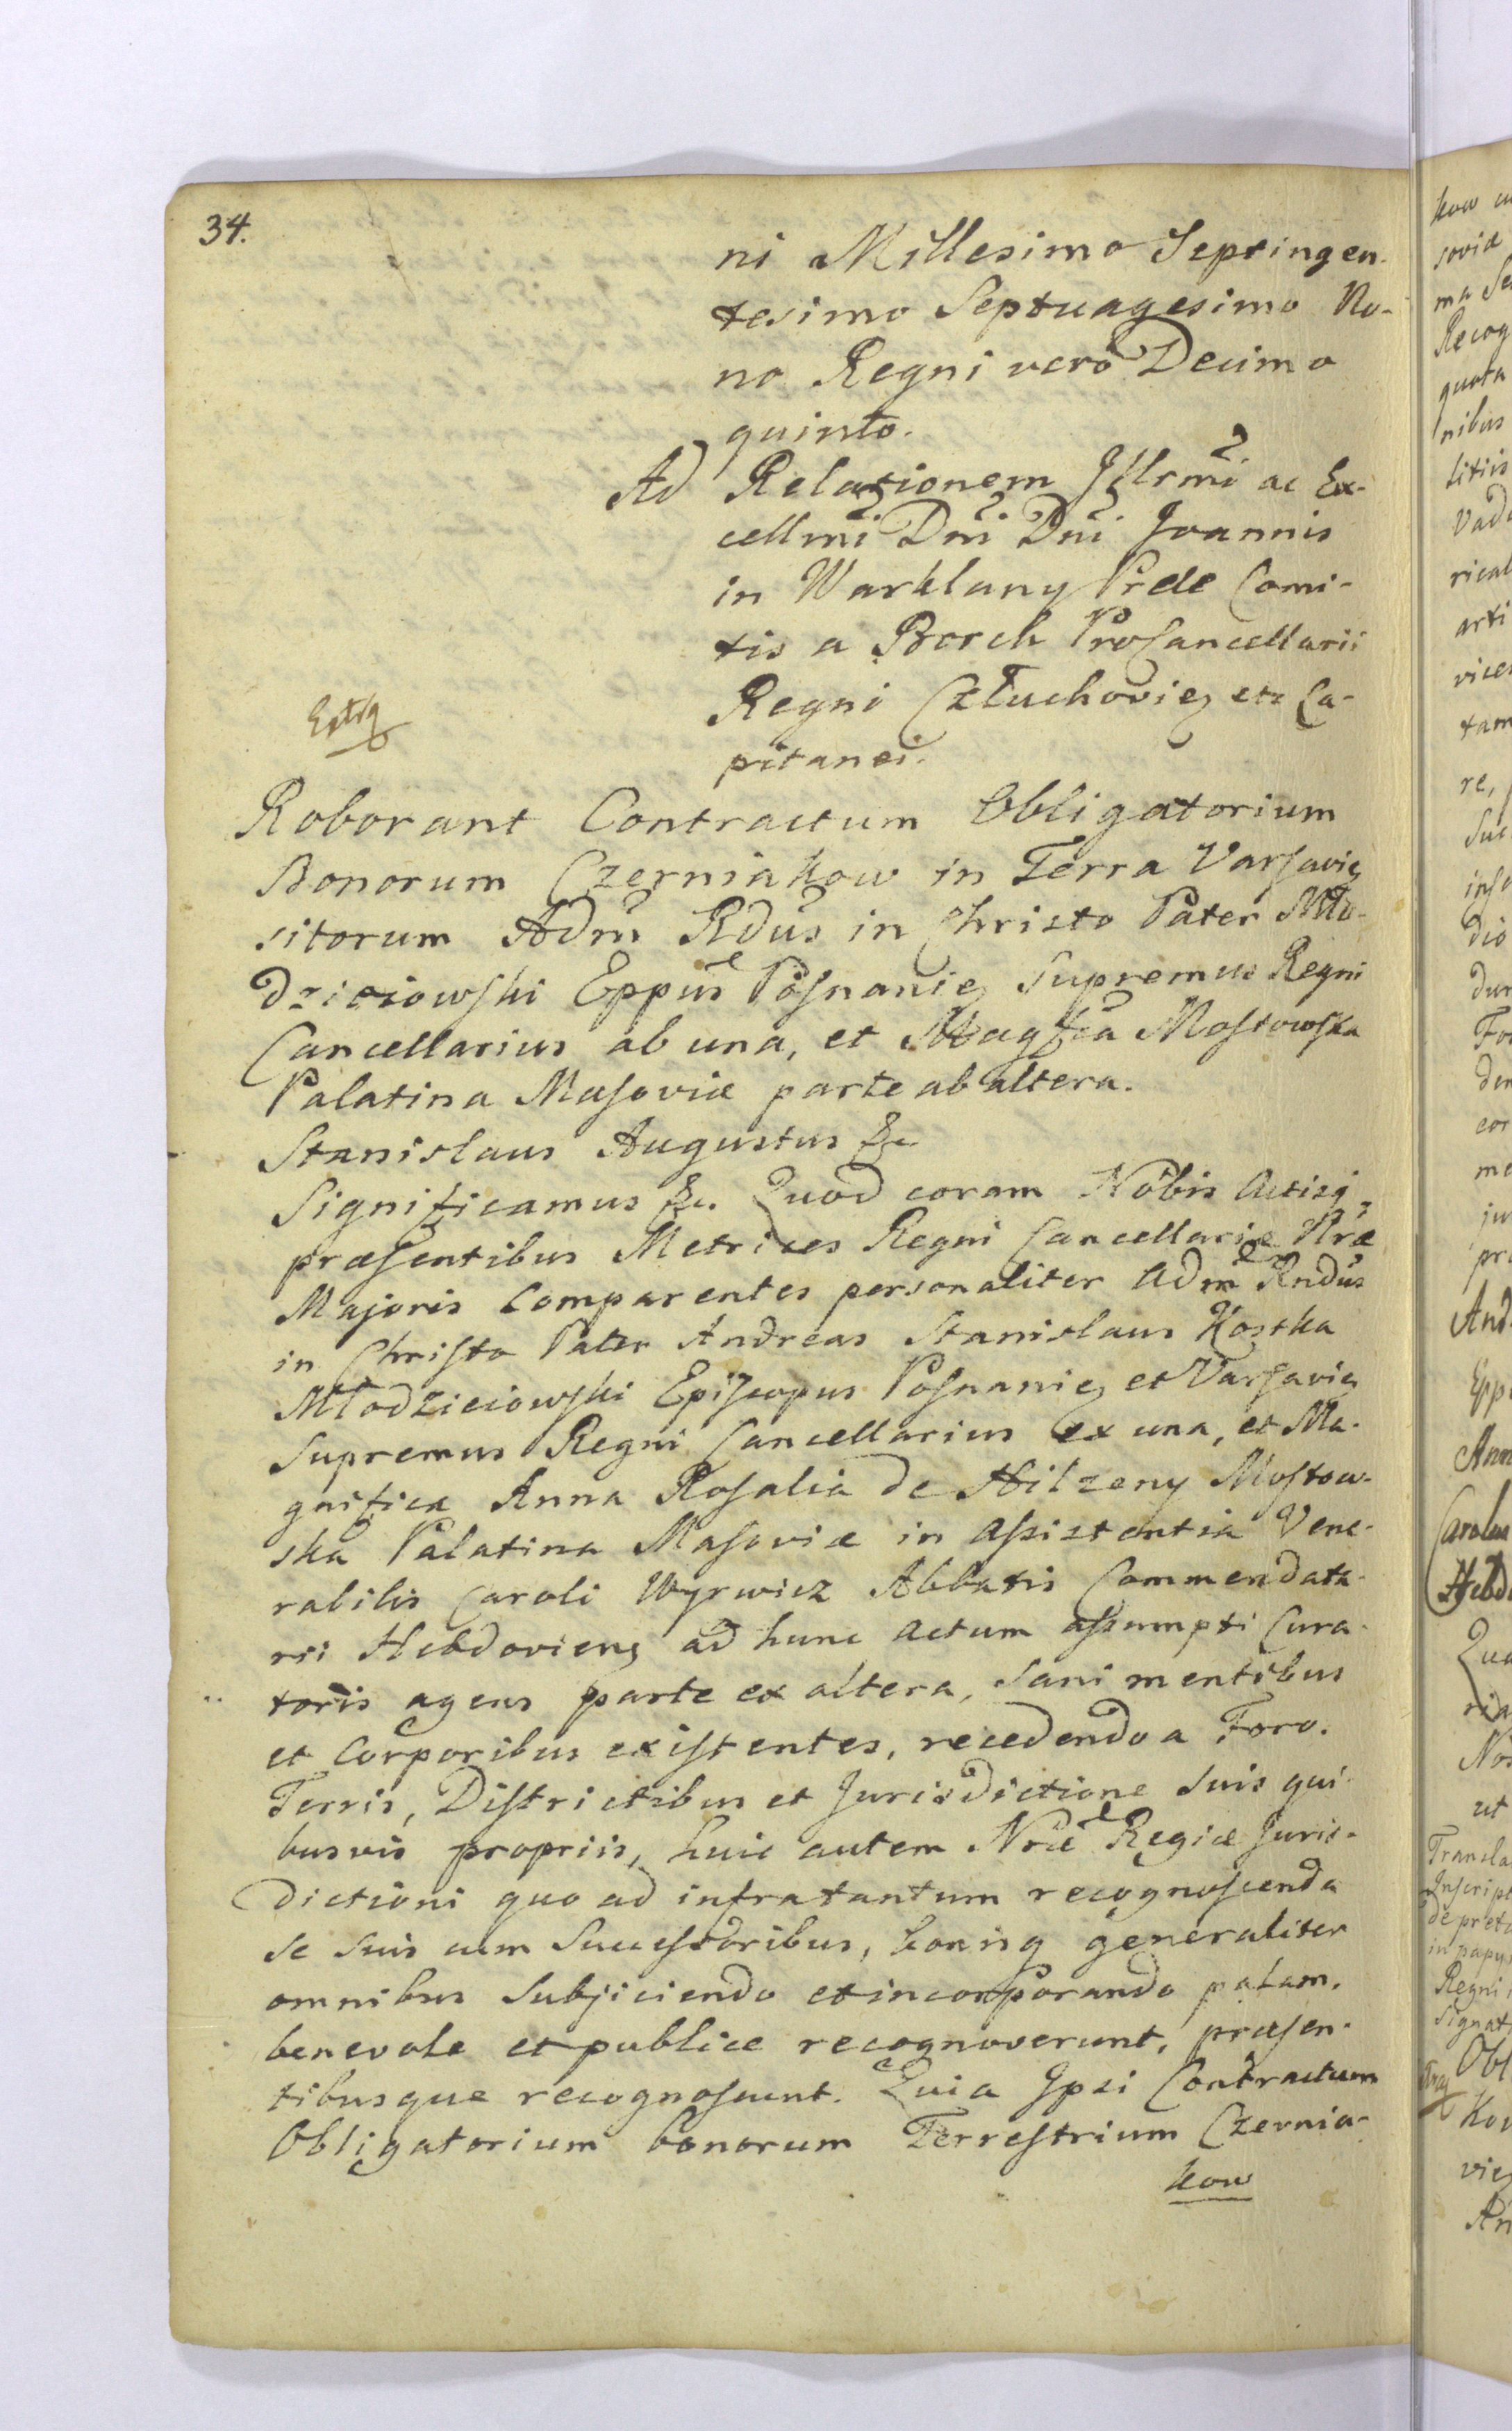 34.
ni Millesimo Septingen-
tesimo Septuagesimo No-
no Regni verò Decimo
quinto.
Ad Relationem Jllrmi ac Ex-
cellmi Dni Dni Joannis
in Warklany Prele Comi-
tis a Borch ProCancellarii
Regni Człuchovien etc Ca-
pitanei.
Roborant Contractum Obligatorium
Bonorum Czerniakow in Terra Varsavien
sitorum Adm Rdus in Christo Pater Mło-
dzieiowski Eppus Posnanien Supremus Regni
Cancellarius ab una, et Magfca Mostowska
Palatina Masoviæ parte ab altera.
Stanislaus Augustus &c
Significamus &c. Quod coram Nobis Actisq
præsentibus Metrices Regni Cancellariæ Nræ
Majoris Comparentes personaliter Adm Rndus
in Christo Pater Andreas Stanislaus Kostka
Młodzieiowski Episcopus Posnanien et Varsavien
Supremus Regni Cancellarius ex una, et Ma-
gnifica Anna Rosalia de Hilzeny Mostow-
ska Palatina Masoviæ in assistentia Vene-
rabilis Caroli Wyrwicz Abbatis Commendata-
rii Hebdoviens ad hunc actum assumpti Cura-
toris agens parte ex altera, Sani mentibus
et Corporibus existentes, recedendo a Foro.
Terris, Districtibus et Jurisdictione Suis qui-
busvis propriis, huic autem Nræ Regiæ Juris-
dictioni quo ad infra tantum recognoscenda
se suis cum Successoribus, bonisq generaliter
omnibus Subjiciendo et incorporando palam.
benevole et publice recognoverunt, præsen-
tibusque recognoscunt. Quia Jpsi Contractum
Obligatorium bonorum Terrestrium Czernia-
kow